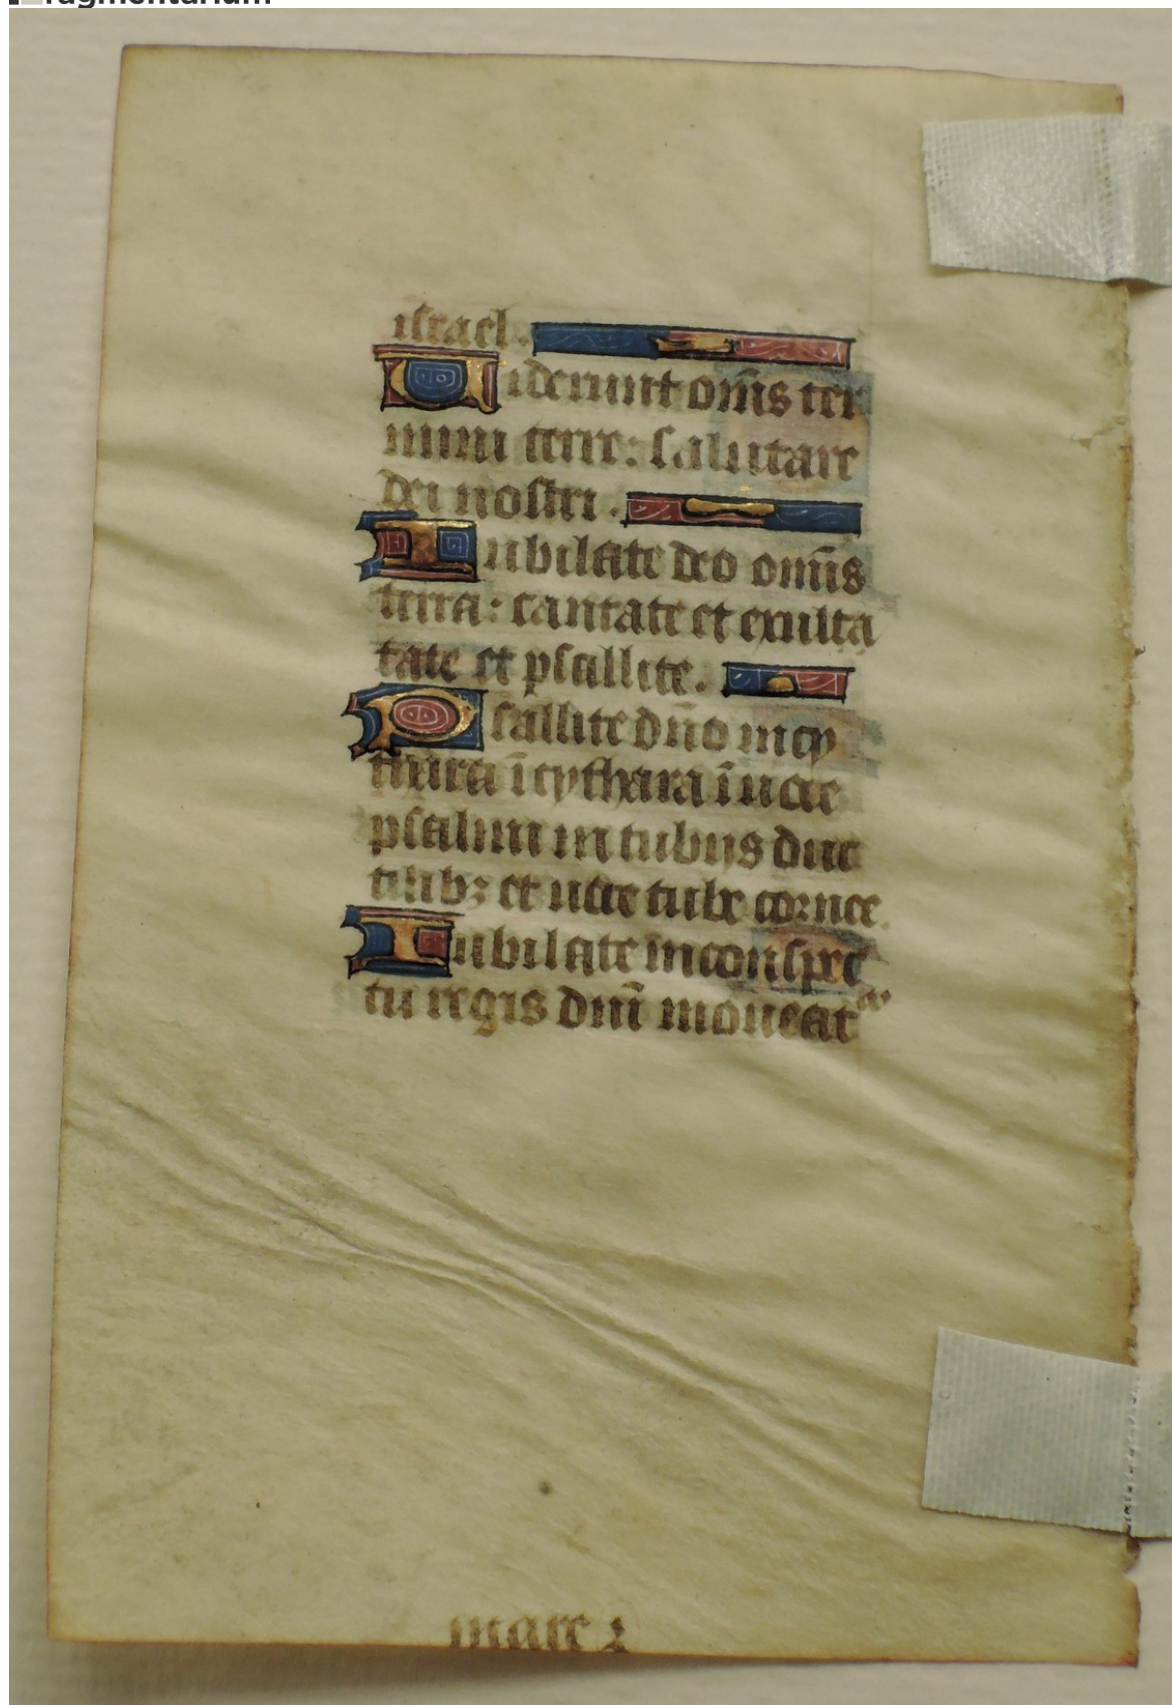 fragmentarium
israel.
Uiderunt om̄s ter
mini terre: salutare
dei nostri.
Iubilate deo om̄is
terra: cantate et exulta
tate et psallite.
Psallite dño in cy
thara ī cythara ī uoce
psalmi in tubijs duc
tilibꝫ et uoce tube cornee.
Iubilate in conspec
tu regis dm̄i moueat
mare ⁊